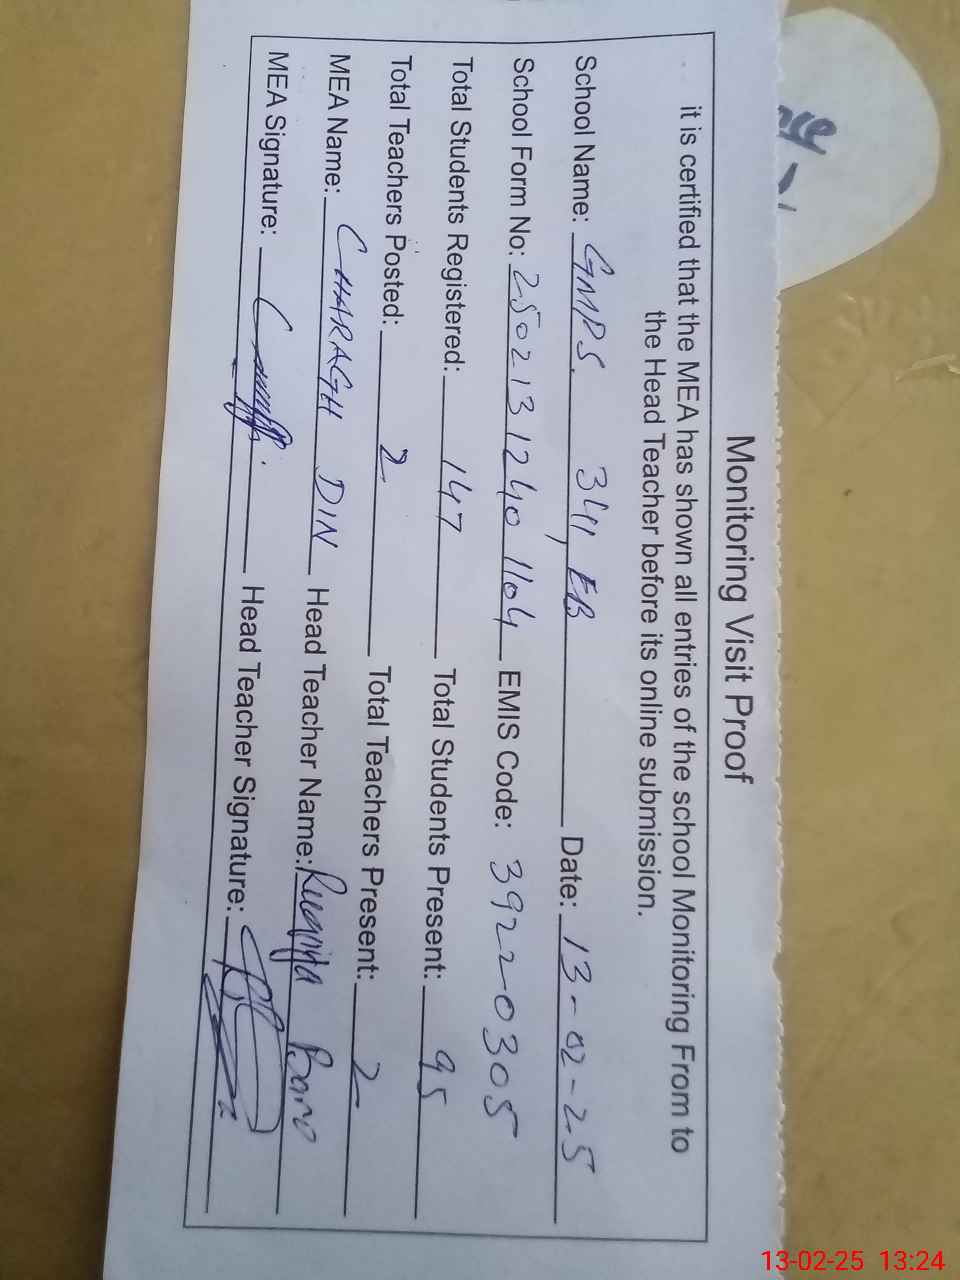 Monitoring Visit Proof
it is certified that the MEA has shown all entries of the school Monitoring From to
the Head Teacher before its online submission.
School Name: GMPS. 341, EB Date: 13-02-25
School Form No: 2502131240 1104 EMIS Code: 39220305
Total Students Registered: 147 Total Students Present: 95
Total Teachers Posted: 2 Total Teachers Present: 2
MEA Name: CHARAGH DIN Head Teacher Name: Bano
MEA Signature: Head Teacher Signature:
13-02-25 13:24